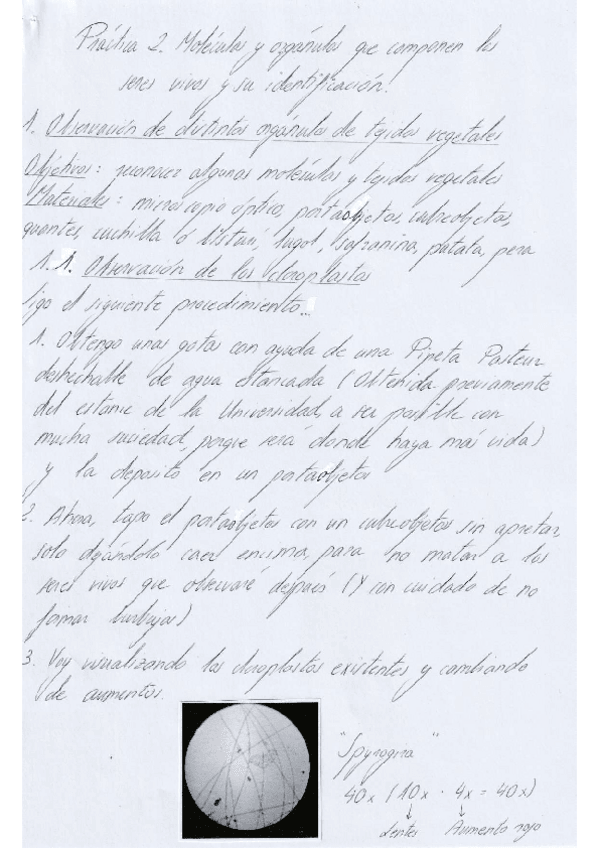 Práctica 2. Moléculas y orgánulos que componen los
seres vivos y su identificación.
1. Observación de distintos orgánulos de tejidos vegetales
Objetivos: reconocer algunas moléculas y tejidos vegetales
Materiales: microscopio óptico, portaobjetos, cubreobjetos,
guantes, cuchilla ó bisturí, lugol, safranina, patata, pera
1.1. Observación de los cloroplastos
Sigo el siguiente procedimiento...
1. Obtengo unas gotas con ayuda de una Pipeta Pasteur
deshechable de agua estancada (Obtenida previamente
del estanc de la Universidad, a ser posible con
mucha suciedad, porque será donde haya más vida)
y la deposito en un portaobjetos
2. Ahora, tapo el portaobjetos con un cubreobjetos sin apretar,
solo dejándolo caer encima, para no matar a los
seres vivos que observaré después (Y con cuidado de no
formar burbujas)
3. Voy visualizando los cloroplastos existentes y cambiando
de aumentos.
"Spyrogira"
40x (10x · 4x = 40x)
↓ ↓
lentes Aumento rojo